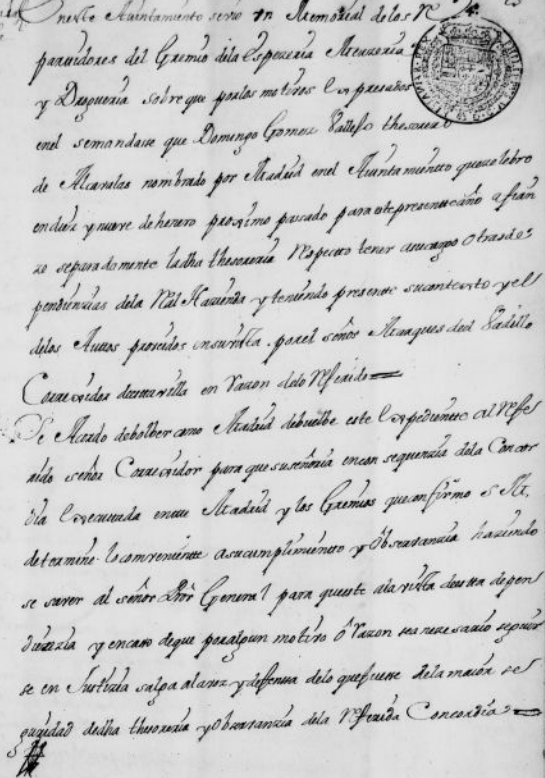 En este Ayuntamiento se vio un Memorial de los R
parvidores del Gremio dela Espezeria Merzeria
y Drogueria sobre que por los motivos Expresados
en el semandasse que Domingo Gomez Vallejo thesorero
de Alcavalas nombrado por Madrid en el Ayuntamiento que zelebro
en diez y nueve de henero proximo passado para este presente año afian
zo separadamente la dha thesoreria respecto tener asu cargo otras de
pendienzias dela Rl Hazienda y teniendo presente su contexto y el
delos Autos proveidos en su vista por el señor Marques del Vadillo
Correxidor desta villa en Razon delo Referido
Se Acordo debolber como Madrid debuelbe este Expediente al Refe
rido señor Correxidor para que su señoria en consequenzia dela Concor
dia Executada entre Madrid y los Gremios que confirmo S. M.
determine lo combeniente asu cumplimiento y Observanzia haziendo
se saver al señor Pror General para que este ala vista de esta depen
dienzia y en caso de que por algun motivo o Razon sea nezesario seguir
se en Justizia salga ala voz y deffensa delo que fuesse dela maior se
guridad de dha thesoreria y Observanzia dela Referida Concordia